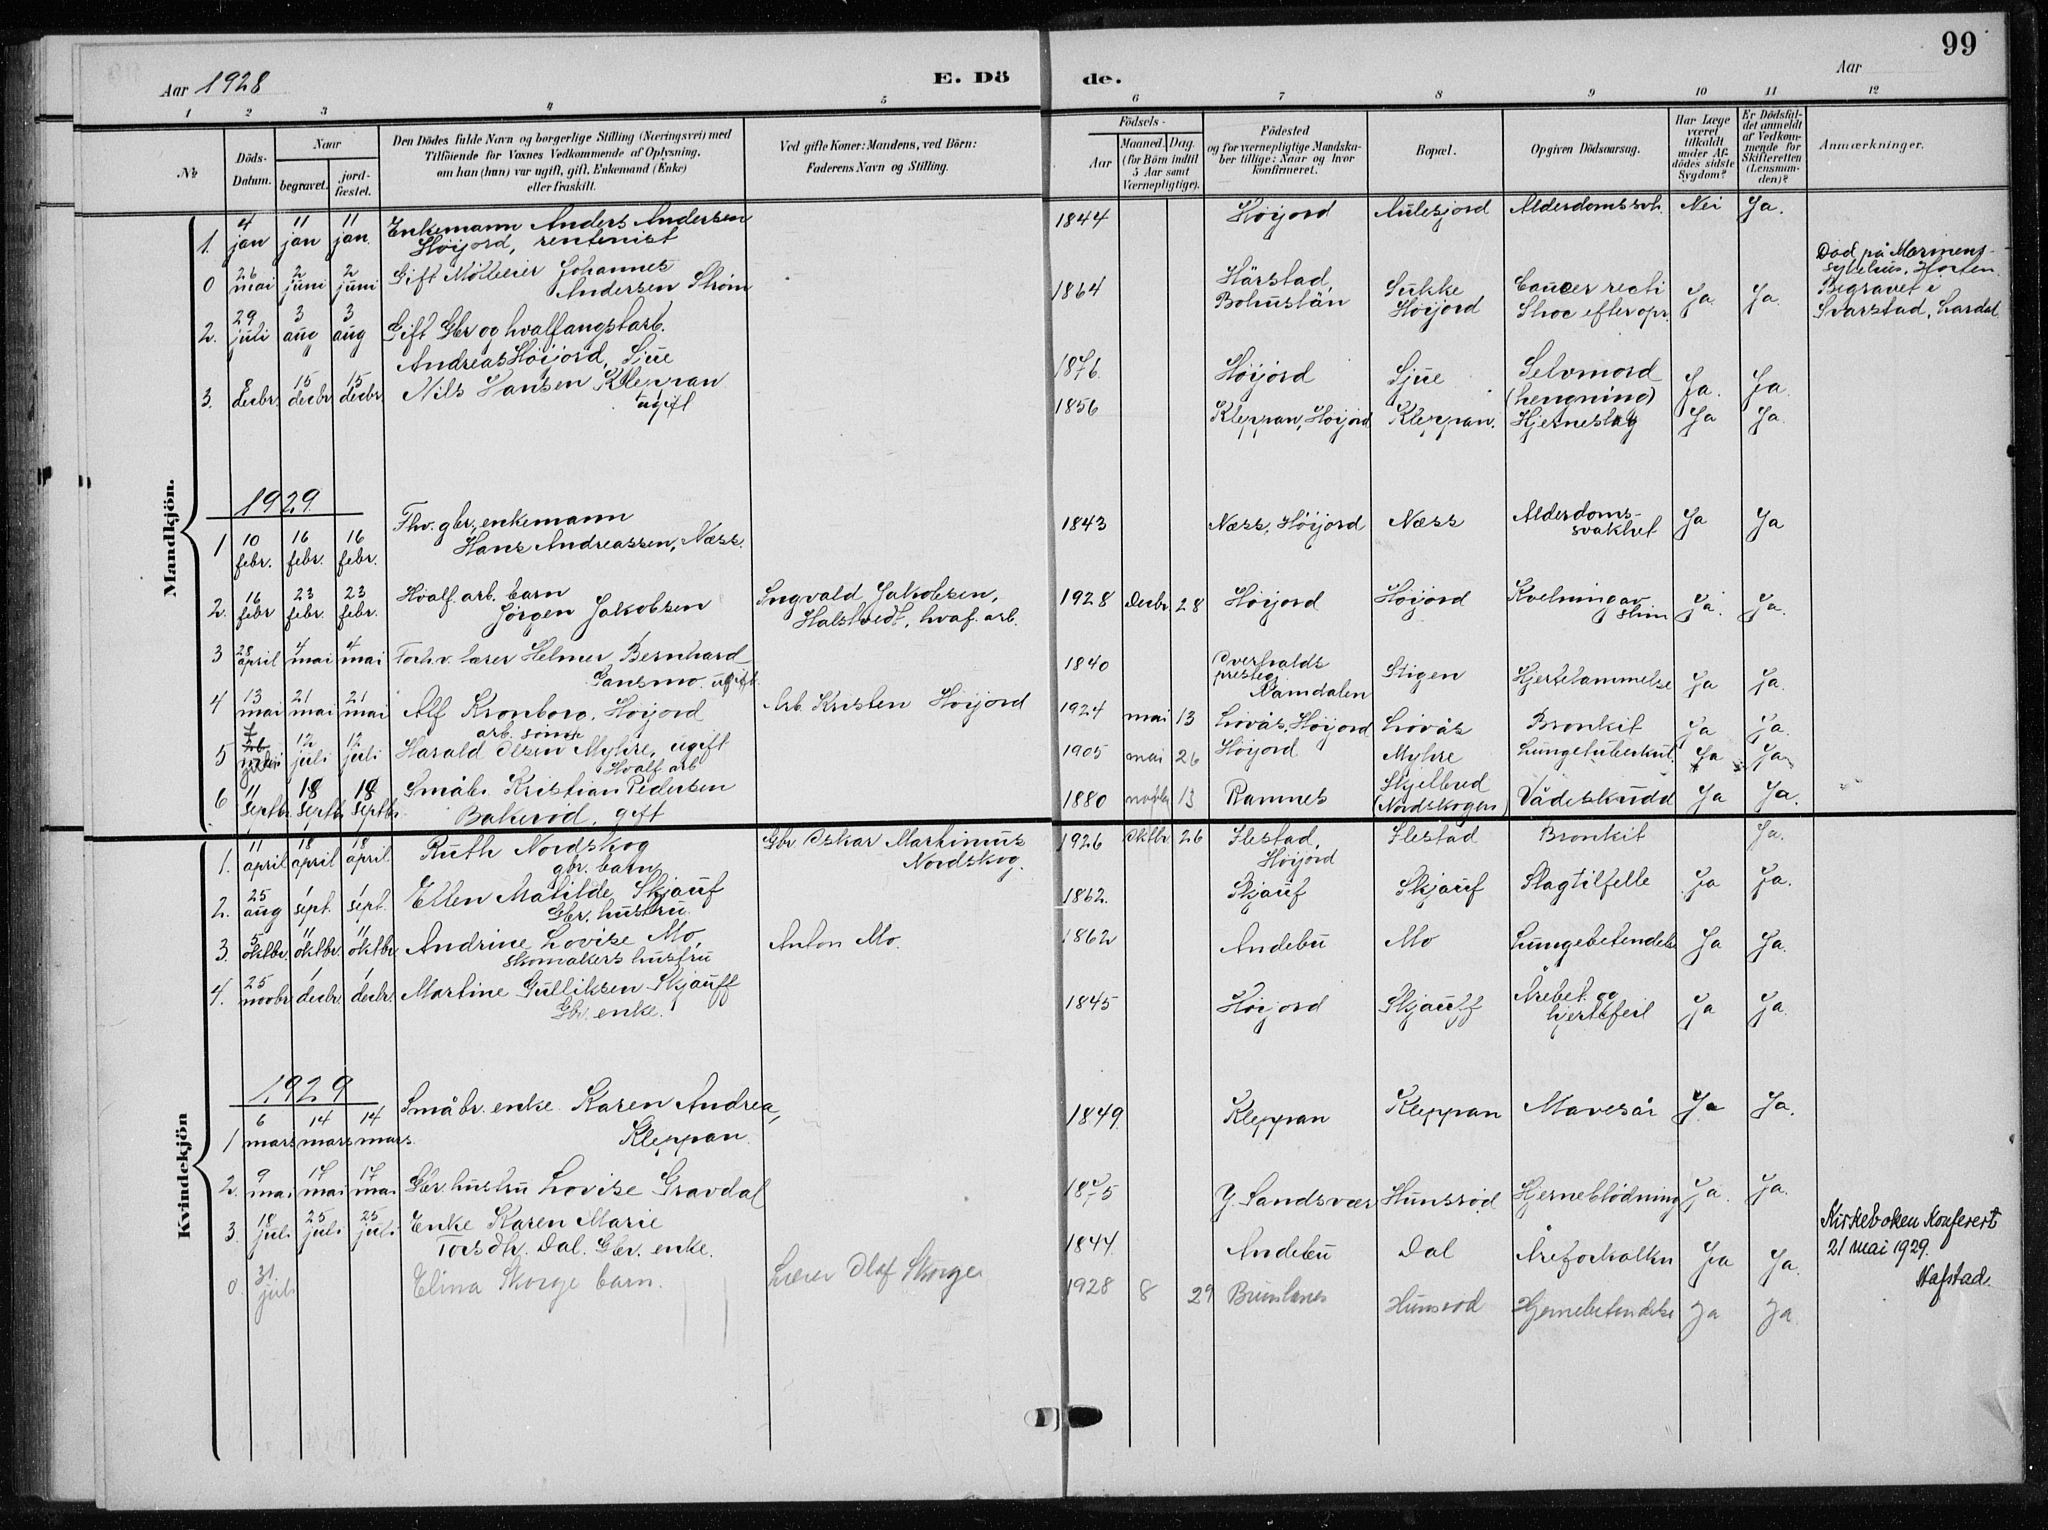 99
Aar 1928
E. Dö
de.
Aar
1 2 3 4 5 6 7 8 9 10 11 12
No
Döds-Datum.
Naar
begravet.
jord-fæstet.
Den Dödes fulde Navn og borgerlige Stilling (Næringsvei) med
Tilföiende for Voxnes Vedkommende af Oplysning,
om han (hun) var ugift, gift, Enkemand (Enke)
eller fraskilt.
Ved gifte Koner: Mandens, ved Börn:
Faderens Navn og Stilling.
Födsels-
Aar
Maaned. Dag.
(for Börn indtil
5 Aar samt
Værnepligtige).
Födested
og for værnepligtige Mandska-
ber tillige: Naar og hvor
konfirmeret.
Bopæl.
Opgiven Dödsaarsag.
Har Læge
været
tilkaldt
under Af-
dödes sidste
Sygdom?
Er Dödsfal-
det anmeldt
af Vedkom-
mende for
Skifteretten
(Lensman-
den)?
Anmærkninger.
Mandkjön.
1. 4 jan 11 jan 11 jan. Enkemann Anders Andersen
Høijord, rentenist
1844 Høijord Aulesjord Alderdomssvk. Nei Ja.
0 26 mai 2 juni 2 juni Gift Møller Johannes
Andersen Strøm
1864 Hårstad, Bohuslän Sukke Høijord Cancer recti Shoc efter opr. Ja Ja.
Död på Marinens
sykehus, Horten.
Begravet i
Svarstad, Lardal
2. 29 juli 3 aug 3 aug Gift Gbr og hvalfangstarb.
Andreas Høijord, Sjue
1876. Høijord Sjue Selvmord (hengning) Ja. Ja.
3. 8 decbr. 15 decbr 15 decbr. Nils Hansen Kleppan
ugift
1856 Kleppan, Høijord Kleppan. Hjerneslag Ja Ja.
1929
1 10 febr. 16 febr. 16 febr. Fhv. gbr. enkemann
Hans Andreassen, Næss.
1843 Næss, Høijord Næss Alderdoms-
svakhet Ja Ja
2. 16 febr 23 febr. 23 febr. Hvalf. arb. barn
Jørgen Jakobsen
Ingvald Jakobsen,
Halstvedt, hvaf. arb.
1928 Decbr 28 Høijord Høijord Kvelning av
slim Ja. Ja.
3 28 april 4 mai 4 mai Forhv. lærer Helmer Bernhard
Gansmo. ugift.
1840 Overhalds
presteg.
Namdalen Stigen Hjertelammelse Ja Ja.
4 13 mai 21 mai 21 mai Alf Kronborg, Høijord
arb. sønn
Arb. Kristen Høijord
1924 mai 13 Løvås, Høijord Løvås Bronkit Ja Ja.
5 7 juli 12 juli 12 juli Harald Olsen Myhre, ugift
Hvalf arb
1905 mai 26 Høijord Myhre Lungetuberkul. Ja Ja
6 11 septbr. 18 septbr. 18 septbr. Småbr. Kristian Pedersen
Bakerød, gift
1880 novbr 13 Ramnes Skjelbred
(Nordskogen) Vådeskudd Ja Ja.
Kvindekjön
1. 11 april 18 april 18 april Ruth Nordskog
gbr. barn
Gbr. Oskar Martinius
Nordskog.
1926 Oktbr. 26 Ilestad,
Høijord Ilestad Bronkit Ja.
2. 25 aug 1 sept. 1 sept. Ellen Matilde Skjauf
Gbr. hustru.
1862. Skjauf Skjauf Slagtilfelle Ja Ja.
3. 5 oktbr. 11 oktbr. 11 oktbr. Andrine Lovise Mo,
skomakers hustru
Anton Mo.
1862 Andebu Mo Lungebetendels Ja Ja.
4. 25 novbr. 1 decbr. 1 decbr. Martine Gulliksen Skjauff
Gbr. enke.
1845 Høijord Skjauff Årebet. og
hjertefeil Ja Ja.
1929
1 6 mars 14 mars 14 mars. Småbr. enke Karen Andrea,
Kleppan.
1849. Kleppan Kleppan Mavesår Ja Ja.
2. 9 mai 17 mai 17 mai Gbr. hustru Lovise Gravdal
1875 Y. Sandsvær Hunsrød Hjerneblödning Ja. Ja.
3. 18 juli 25 juli 25 juli Enke Karen Marie
Torsdtr. Dal. Gbr. enke.
1844. Andebu Dal Åreforkalkn Ja Ja.
Kirkeboken Konferert
21 mai 1929.
Hafstad.
0. 31 juli Elina Skorge barn.
Lærer Olaf Skorge
1928 8 29 Brunlanes Hunsrød Hjernebetendelse Ja Ja.